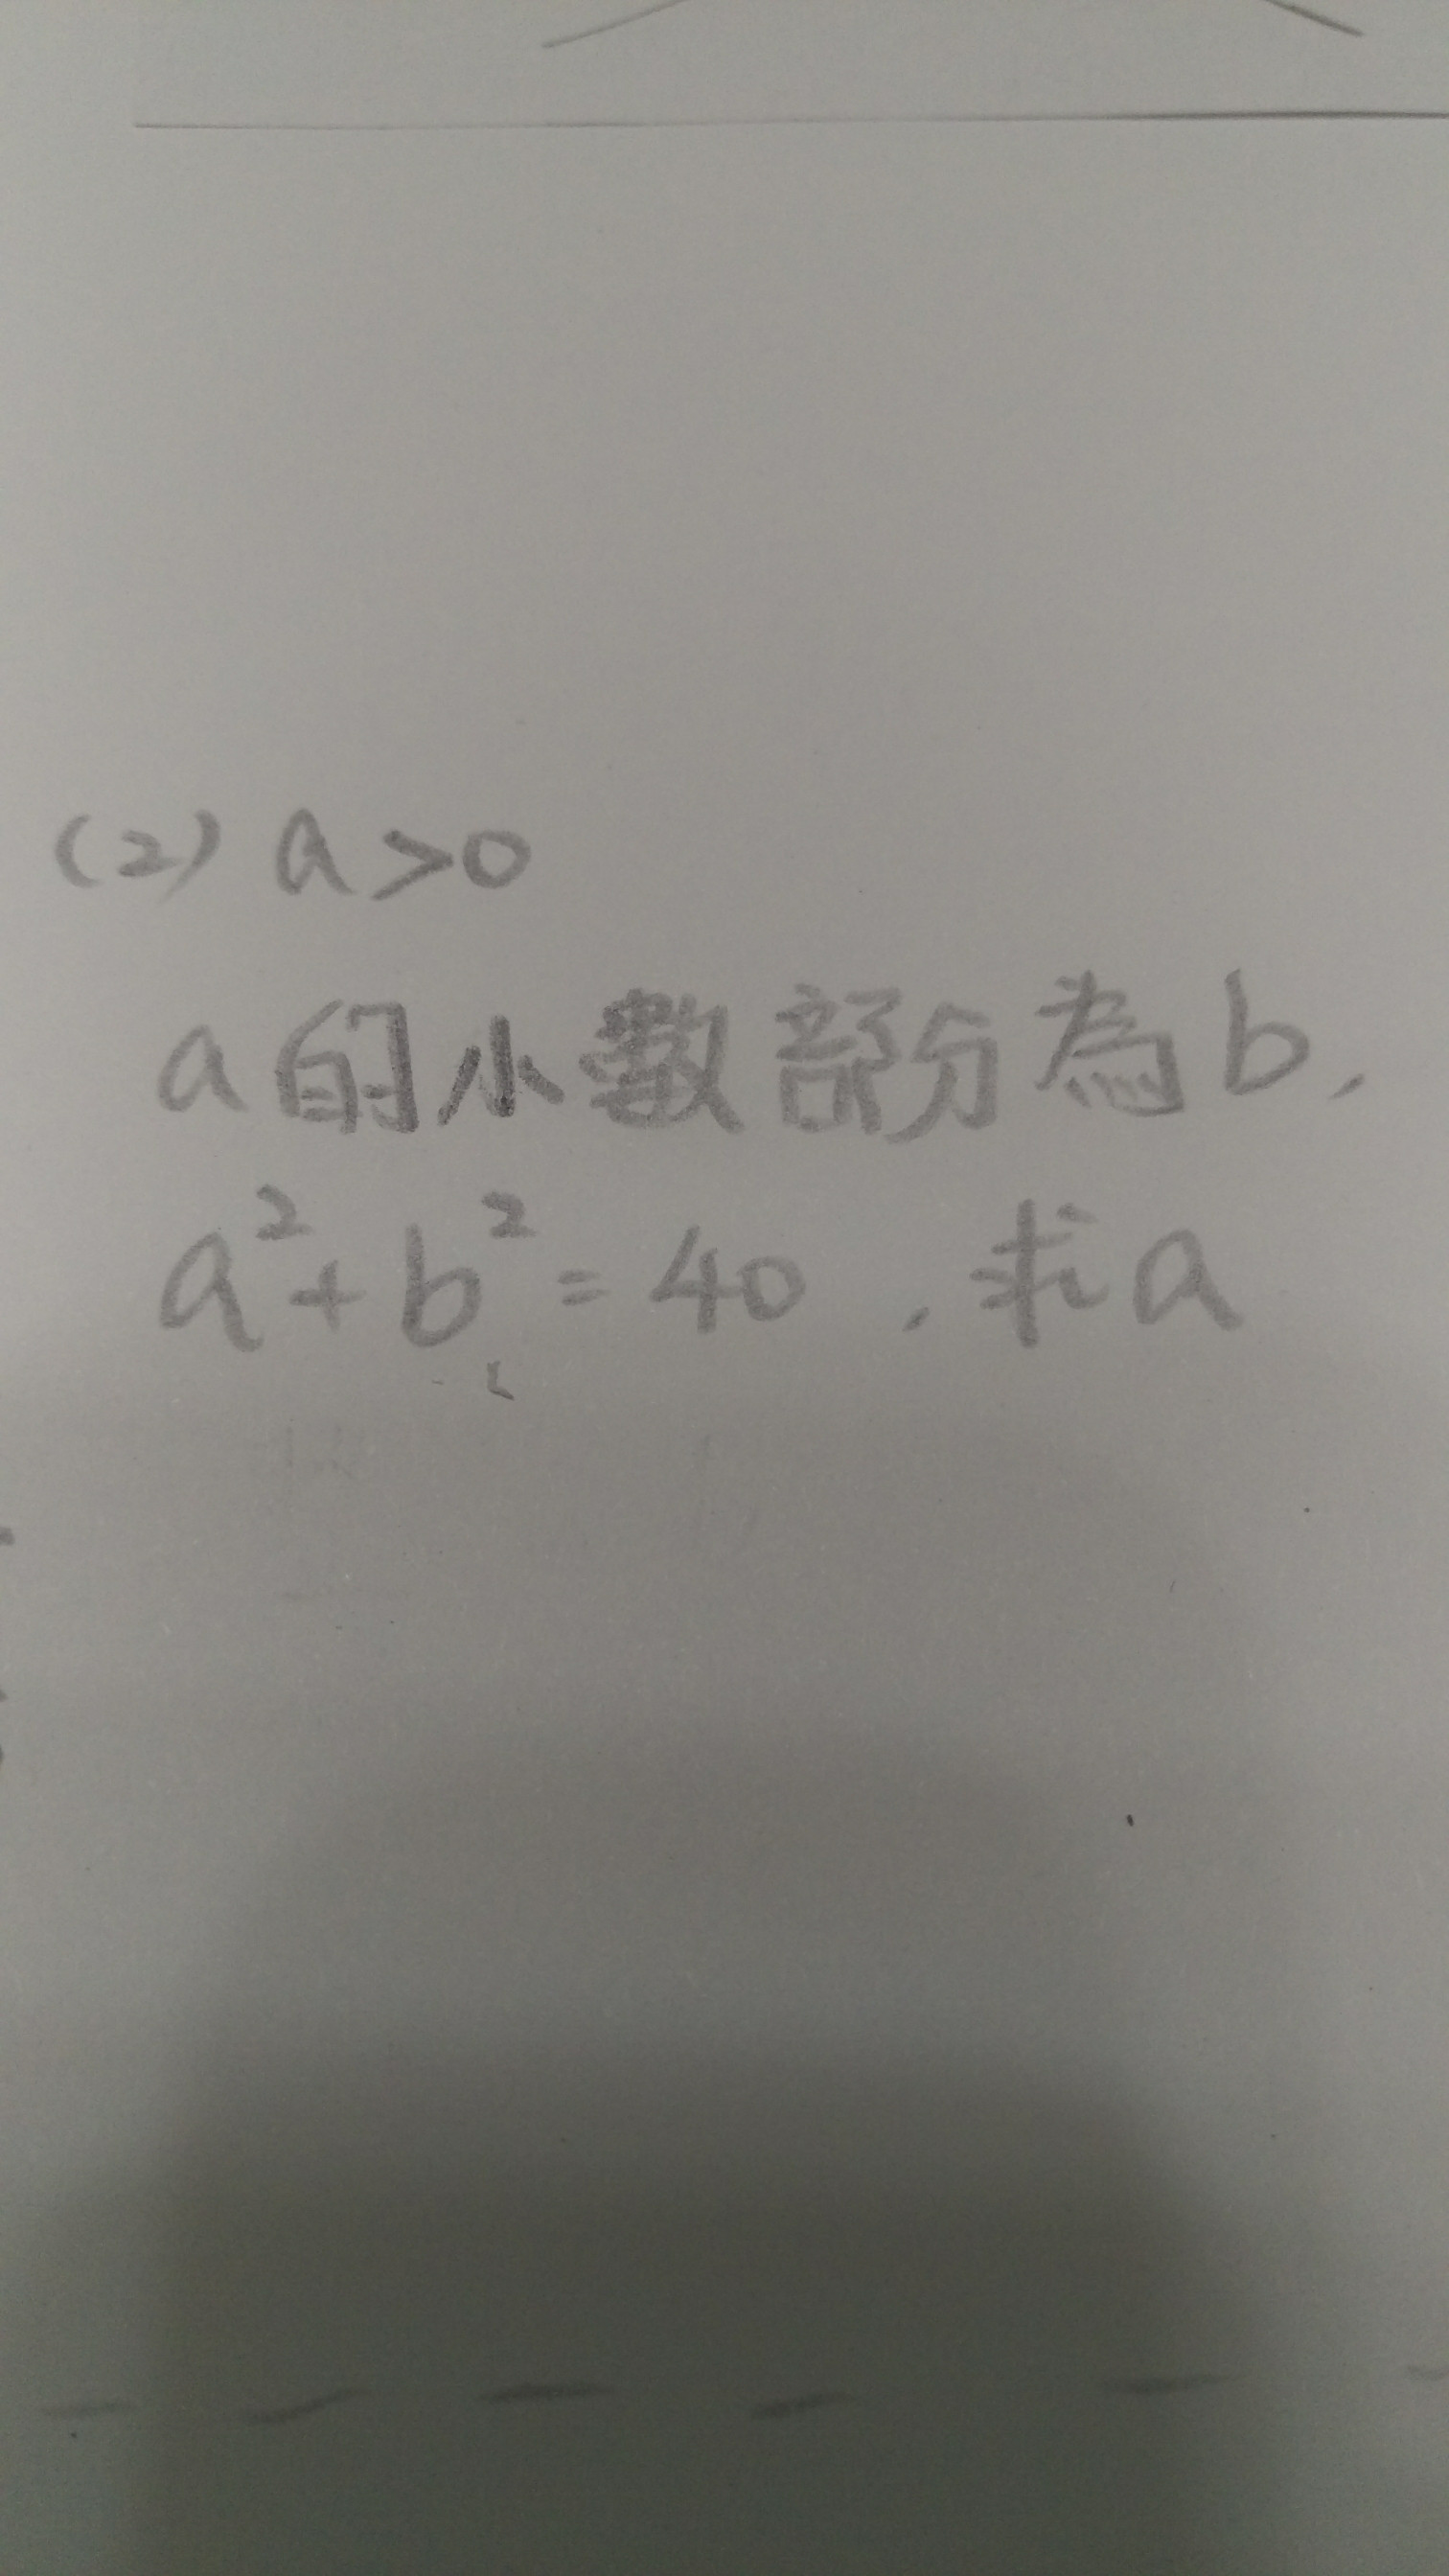 (2) a>0
a的小數部分為b,
a²+b²=40, 求a